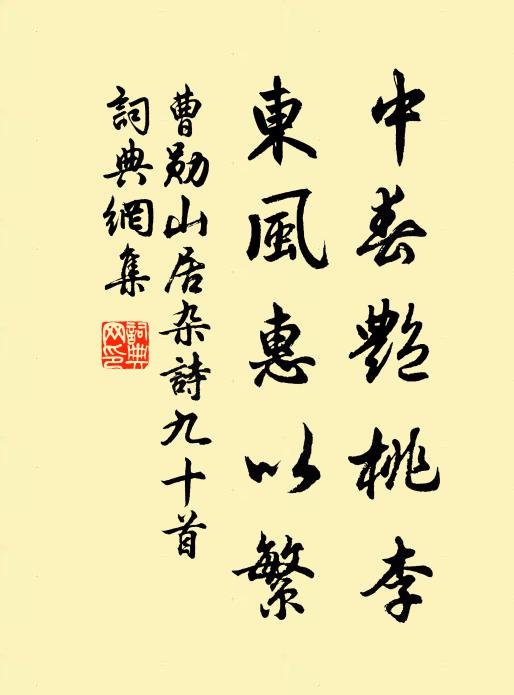 中春艷桃李
東風惠以繁
曹勛山居杂詩九十首
詞典網集
詞典網印